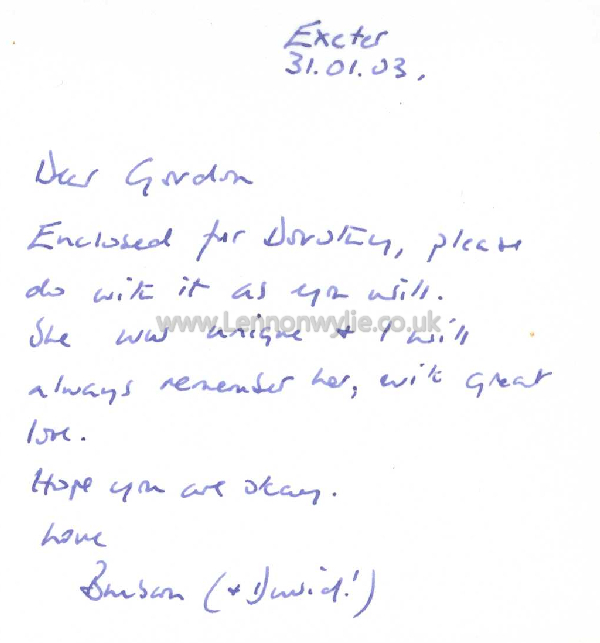 Exeter
31.01.03.
Dear Gordon
Enclosed for Dorothy, please
do with it as you will.
www.Lennonwylie.co.uk
She was unique & I will
always remember her, with great
love.
Hope you are okay.
Love
(+ David!)